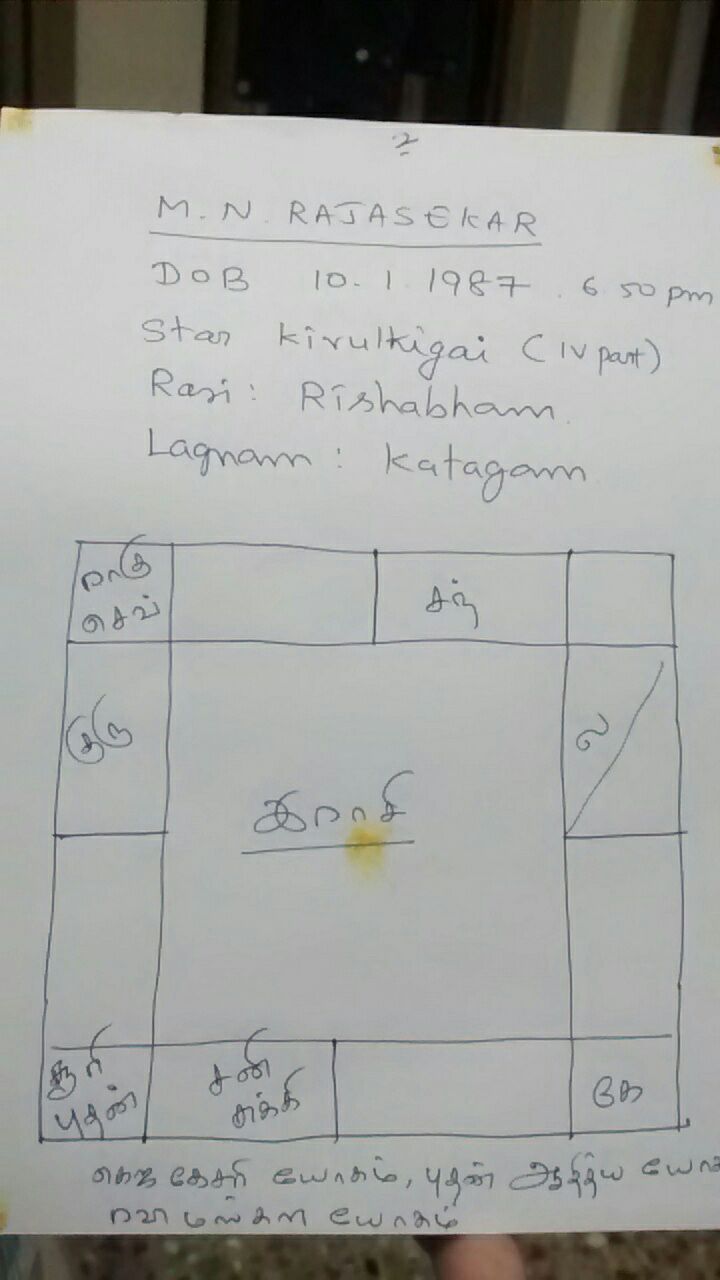 2
M. N. RAJASEKAR
DOB 10. 1. 1987. 6 50 pm
Star Kirultigai (IV part)
Rasi: Rishabham.
Lagnam: Katagam
ராகு
செவ்
சந்
குரு
ல
இராசி
சூரி
புதன்
சனி
சுக்கி
கே
கெஜ கேசரி யோகம், புதன் ஆதித்ய யோக
யோகம்